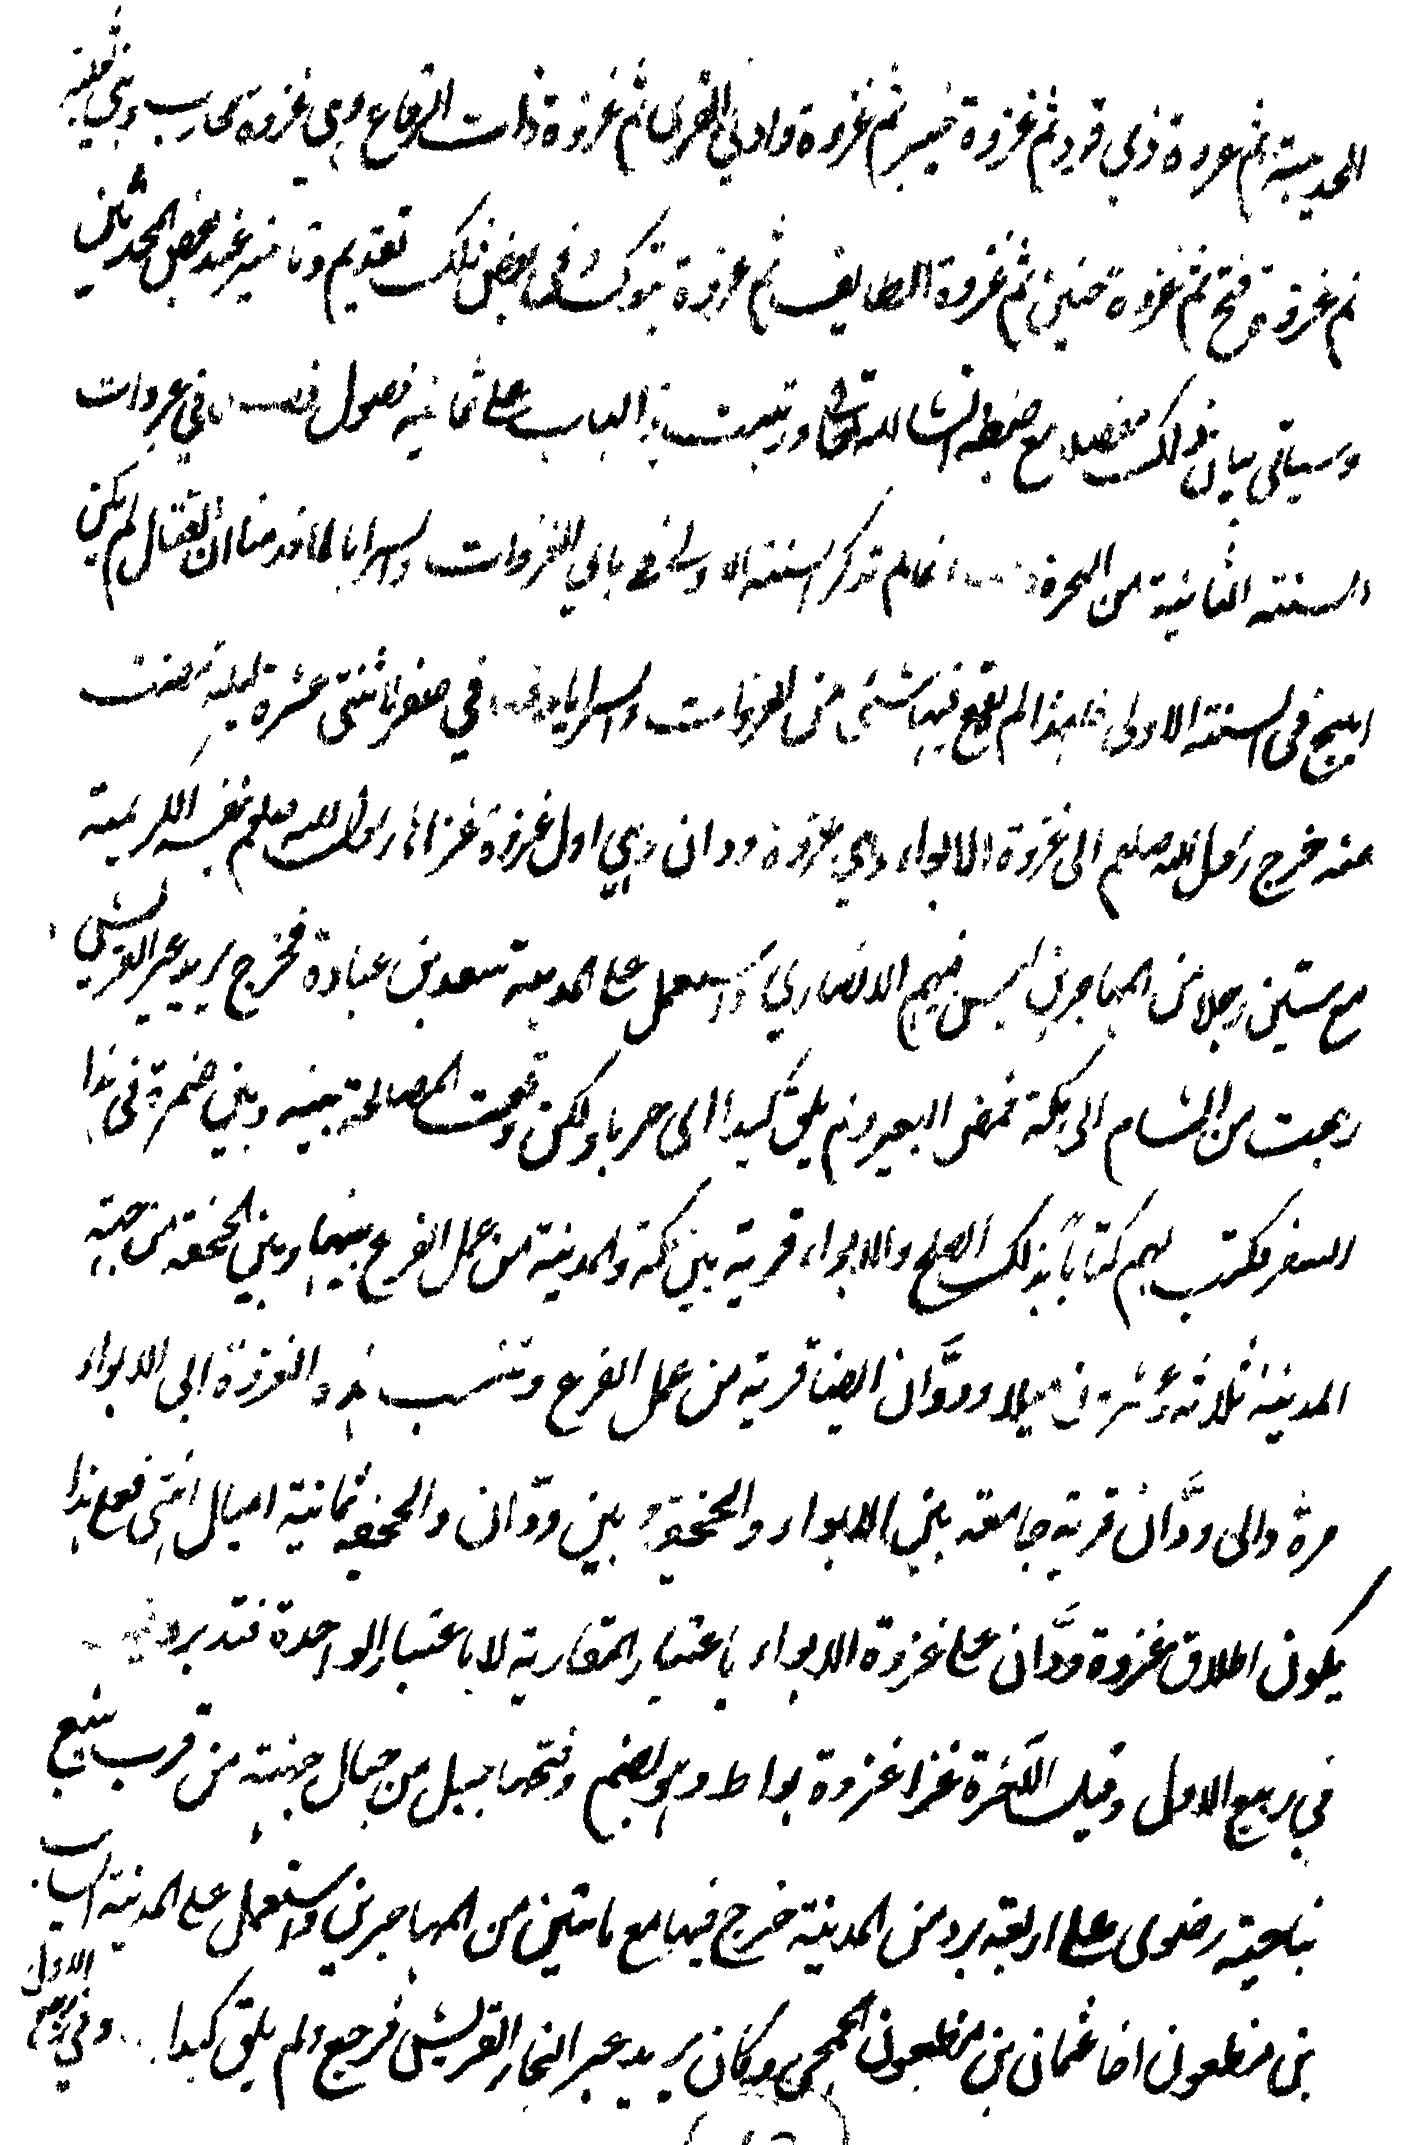 الحديبية ثم غزوة ذي قرد ثم غزوة خيبر ثم غزوة وادي القرى ثم غزوة ذات الرقاع وهي غزوة محارب وبني ثعلبة
ثم غزوة فتح ثم غزوة حنين ثم غزوة الطايف ثم غزوة تبوك وفي بعض ذلك تقديم وتاخير عند بعض المحدثين
وسياتي بيان ذلك مفصلا مع ضبطه انشا الله تعالى ورتبت هذا الباب على ثمانية فصول فصل في غزوات
السنة الثانية من الهجرة انما لم تذكر السنة الاولى في بابي الغزوات والسرايا لما قدمنا ان القتال لم يكن
ابيح في السنة الاولى فلهذا لم يقع فيها شئ من الغزوات والسرايا وفيها في صفر لاثنتي عشرة ليلة مضت
منه خرج رسول الله صلعم الى غزوة الابواء وهي غزوة ودان وهي اول غزوة غزاها رسول الله صلعم بنفسه الكريمة
مع ستين رجلا من المهاجرين ليس فيهم الانصاري واستعمل على المدينة سعد بن عبادة فخرج يريد عير القريش
رجعت من الشام الى مكة فمضى العير ولم يلق كيدا اى حربا ولكن وقعت المصالحة بينه وبين ضمرة في هذا
السفر فكتب لهم كتابا بذلك الصلح والابواء قرية بين مكة والمدينة من عمل الفرع بينها وبين الجحفة من جهة
المدينة ثلاثة وعشرون ميلا وودَّان ايضا قرية من عمل الفرع وتنسب هذه الغزوة الى الابواء
مرة والى ودَّان قرية جامعة بين الابواء والجحفة وبين ودّان والجحفة ثمانية اميال انتهى فعلى هذا
يكون اطلاق غزوة ودَّان على غزوة الابواء باعتبار المقاربة لا باعتبار الواحدة فتدبر وفيها
في ربيع الاول وقيل الآخرة غزا غزوة بواط وهو بضم وفتحها جبل من جبال جهينة من قرب ينبع
بناحية رضوى على اربعة برد من المدينة خرج فيها مع ماتين من المهاجرين واستعمل على المدينة السايب
بن مظعون اخا عثمان بن مظعون الجمحى وكان يريد عير التجار القريش فرجع ولم يلق كيدا وفي ربيع الاول